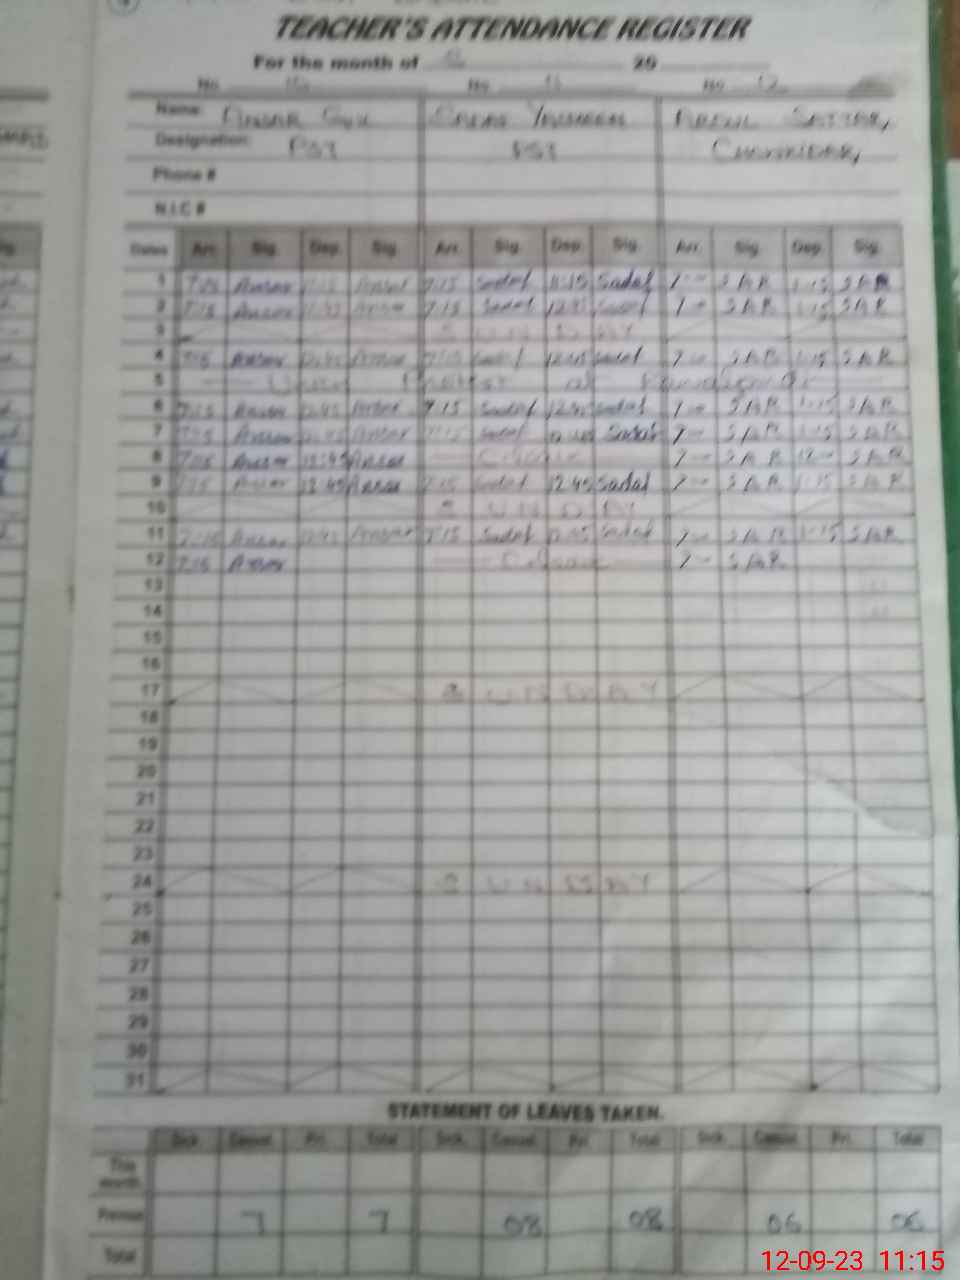 TEACHER'S ATTENDANCE REGISTER
For the month of 20
No. No. 11 No. 12
Name: Ansar Gul Sadaf Yasmeen Abdul Sattar,
Designation: PST PST Chowkidar,
Phone #
N.I.C #
Dates Arr. Sig. Dep. Sig. Arr. Sig. Dep. Sig. Arr. Sig. Dep. Sig.
1 7:15 Ansar 11:15 Ansar 7:15 Sadaf 11:15 Sadaf 7 - SAR 1:15 SAR
2 7:15 Ansar 12:45 Ansar 7:15 Sadaf 12:45 Sadaf 7 - SAR 1:15 SAR
3 SUNDAY
4 7:15 Ansar 12:45 Ansar 7:15 Sadaf 12:45 Sadaf 7 - SAR 1:15 SAR
5 at
6 7:15 Ansar 12:45 Ansar 7:15 Sadaf 12:45 Sadaf 7 - SAR 1:15 SAR
7 7:15 Ansar 12:45 Ansar 7:15 Sadaf 12:45 Sadaf 7 - SAR 1:15 SAR
8 7:15 Ansar 12:45 Ansar C. leave 7 - SAR 12 - SAR
9 7:15 Ansar 12:45 Ansar 7:15 Sadaf 12:45 Sadaf 7 - SAR 1:15 SAR
10 SUNDAY
11 7:15 Ansar 12:45 Ansar 7:15 Sadaf 12:45 Sadaf 7 - SAR 1:15 SAR
12 7:15 Ansar C. leave 7 - SAR
13
14
15
16
17 SUNDAY
18
19
20
21
22
23
24 SUNDAY
25
26
27
28
29
30
31
STATEMENT OF LEAVES TAKEN.
Sick. Casual. Pri. Total Sick. Casual. Pri. Total Sick. Casual. Pri. Total
This month.
Previous 7 7 08 08 06 06
Total
12-09-23 11:15